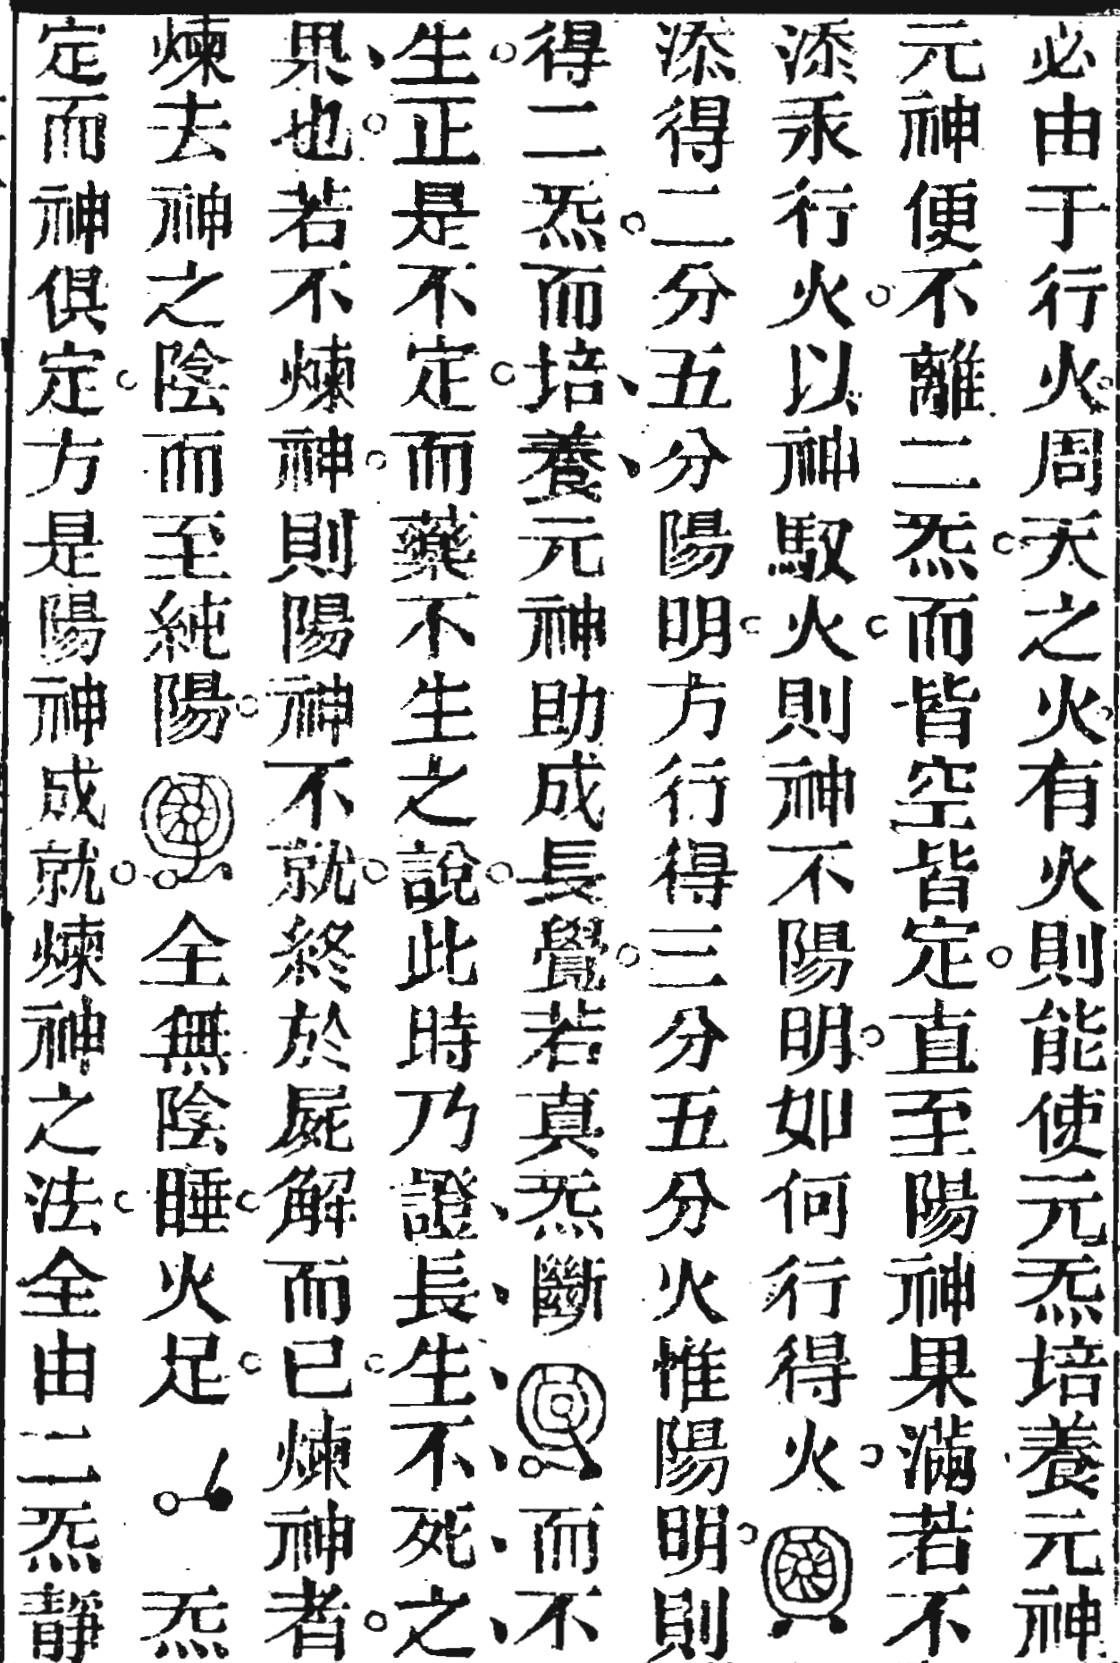 必由于行火周天之火有火則能使元炁培養元神
元神便不離二炁而皆空皆定直至陽神果滿若不
添汞行火以神馭火則神不陽明如何行得火
添得二分五分陽明方行得三分五分火惟陽明則
得二炁而培養元神助成長覺若真炁斷而不
生正是不定而藥不生之說此時乃證長生不死之
果也若不煉神則陽神不就終於屍解而已煉神者
煉去神之陰而至純陽全無陰睡火足炁
定而神俱定方是陽神成就煉神之法全由二炁靜